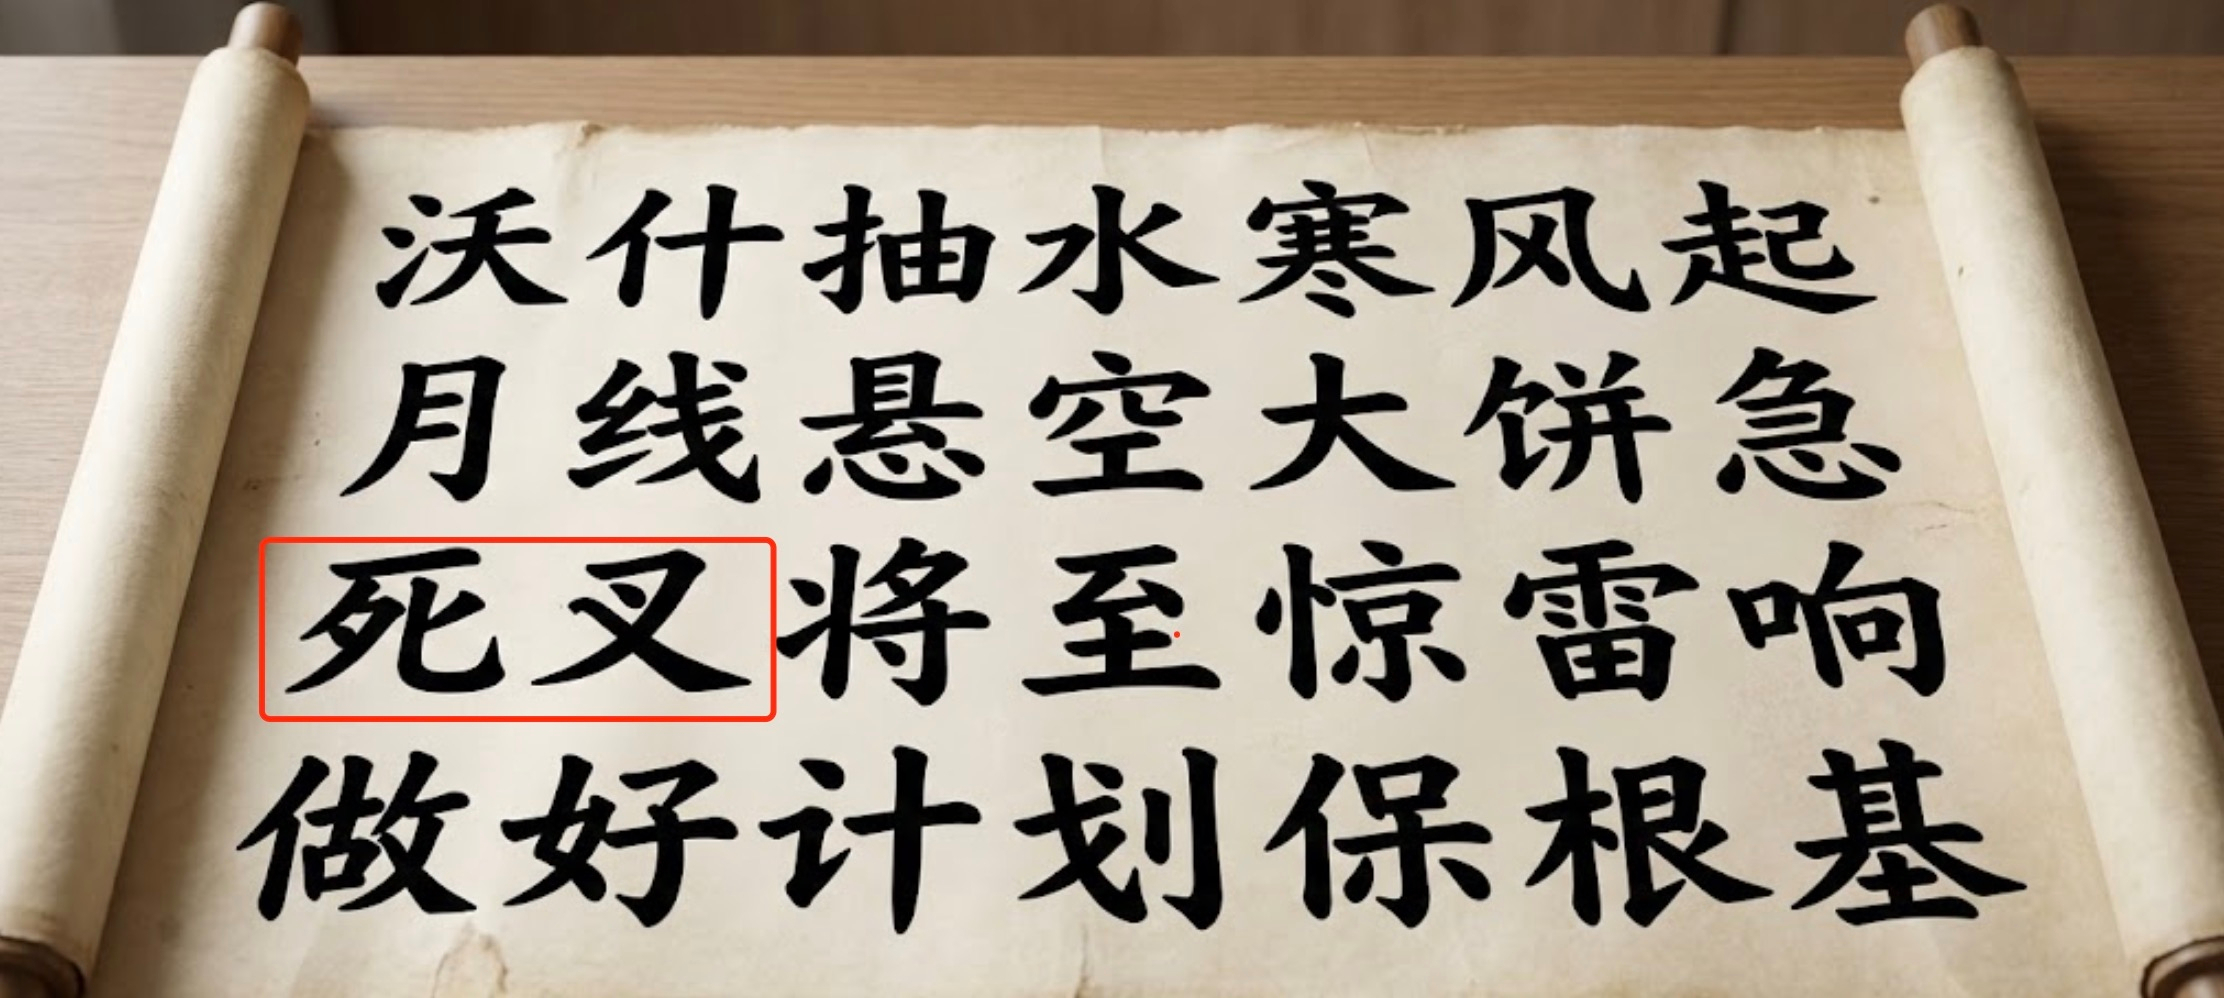 沃什抽水寒风起
月线悬空大饼急
死叉将至惊雷响
做好计划保根基